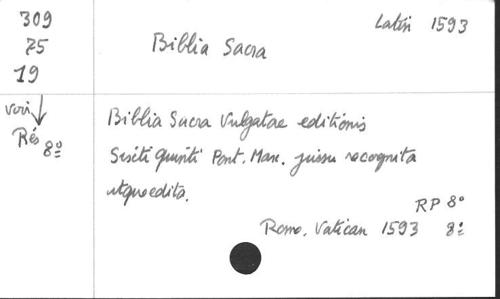 309
75
19
voir
Rés 8º
Latin 1593
Biblia Sacra
Biblia Sacra Vulgatae editionis
Sixti Quinti Pont. Max. jussu recognita
atque edita.
RP 8º
Rome. Vatican 1593 8º